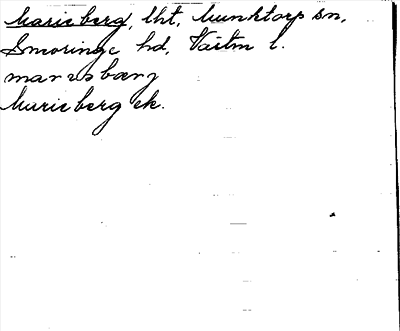 Marieberg, lht, Munktorp sn,
Snevringe hd, Västm l.
marıɛbærj
Marieberg ek.